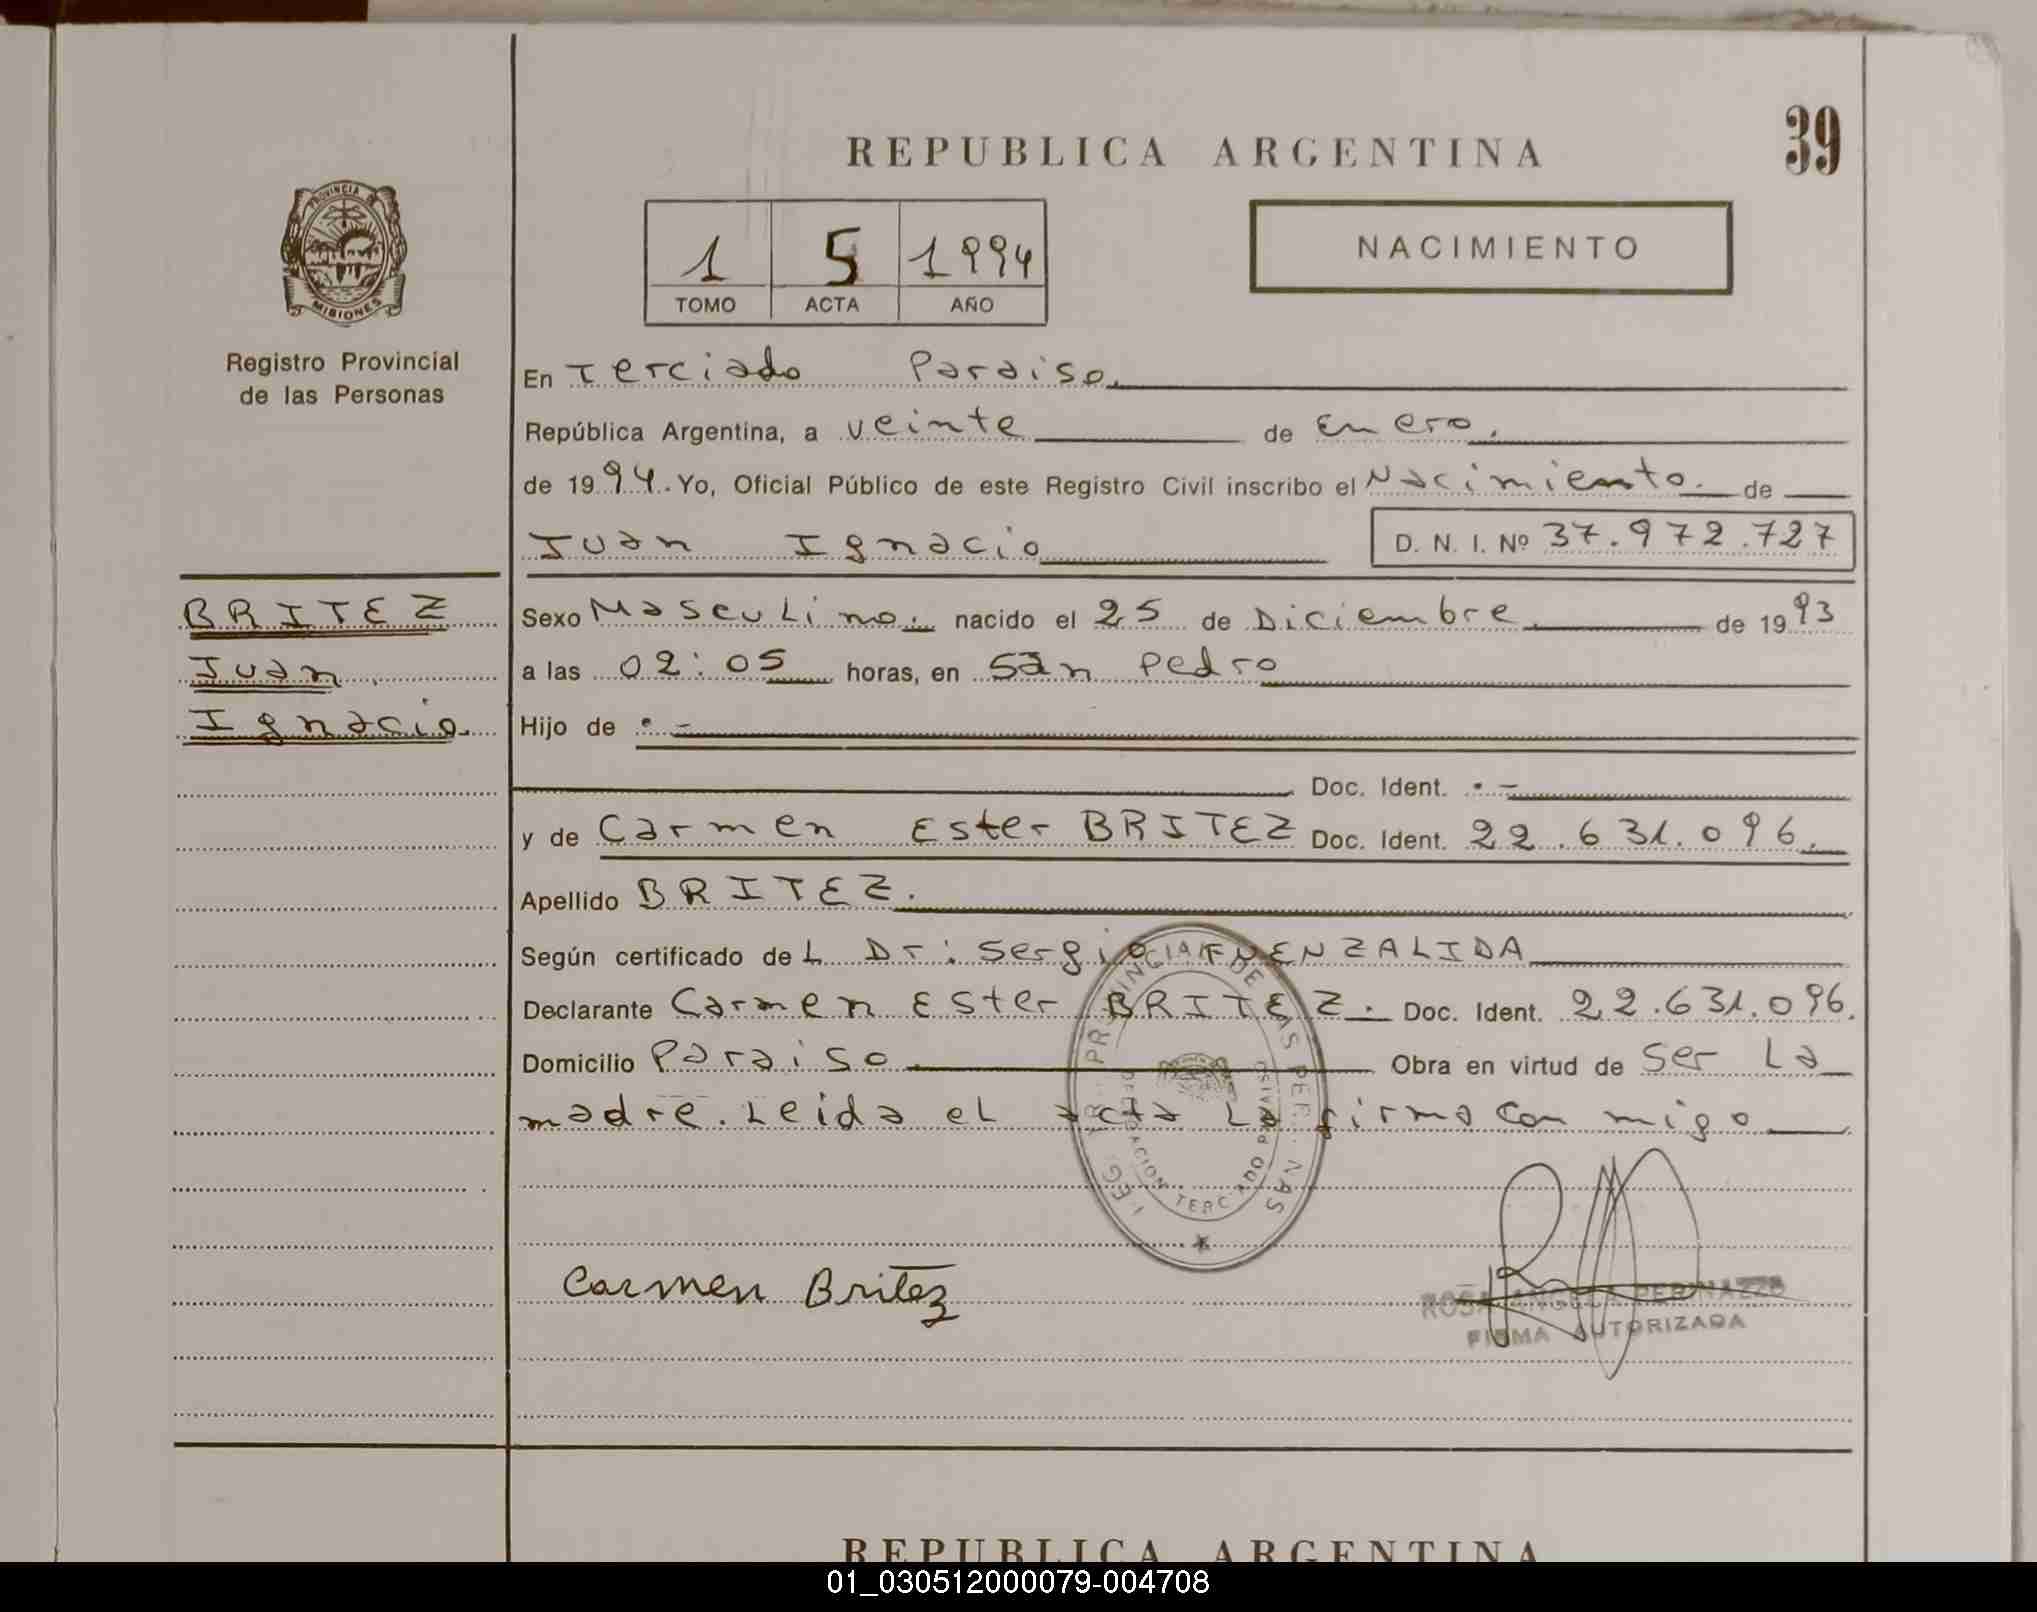 39
REPUBLICA ARGENTINA
PROVINCIA DE
MISIONES
Registro Provincial
de las Personas
1 5 1994
TOMO ACTA AÑO
NACIMIENTO
En Terciado Paraiso.
República Argentina, a veinte de Enero.
de 1994. Yo, Oficial Público de este Registro Civil inscribo el Nacimiento. de
Juan Ignacio D. N. I. Nº 37.972.727
BRITEZ
Juan
Ignacio.
Sexo Masculino. nacido el 25 de Diciembre de 1993
a las 02:05 horas, en San Pedro
Hijo de .-
Doc. Ident. .-
y de Carmen Ester BRITEZ Doc. Ident. 22.631.096.
Apellido BRITEZ.
Según certificado del Dr: Sergio FUENZALIDA
Declarante Carmen Ester BRITEZ. Doc. Ident. 22.631.096.
Domicilio Paraiso Obra en virtud de ser La
madre. Leida el acta La firma con migo
PROVINCIAL DE LAS PERSONAS
DELEGACION TERCIADO PARAISO
Carmen Britez
ROSA ANGELA PERINAZZO
FIRMA AUTORIZADA
REPUBLICA ARGENTINA
01_030512000079-004708